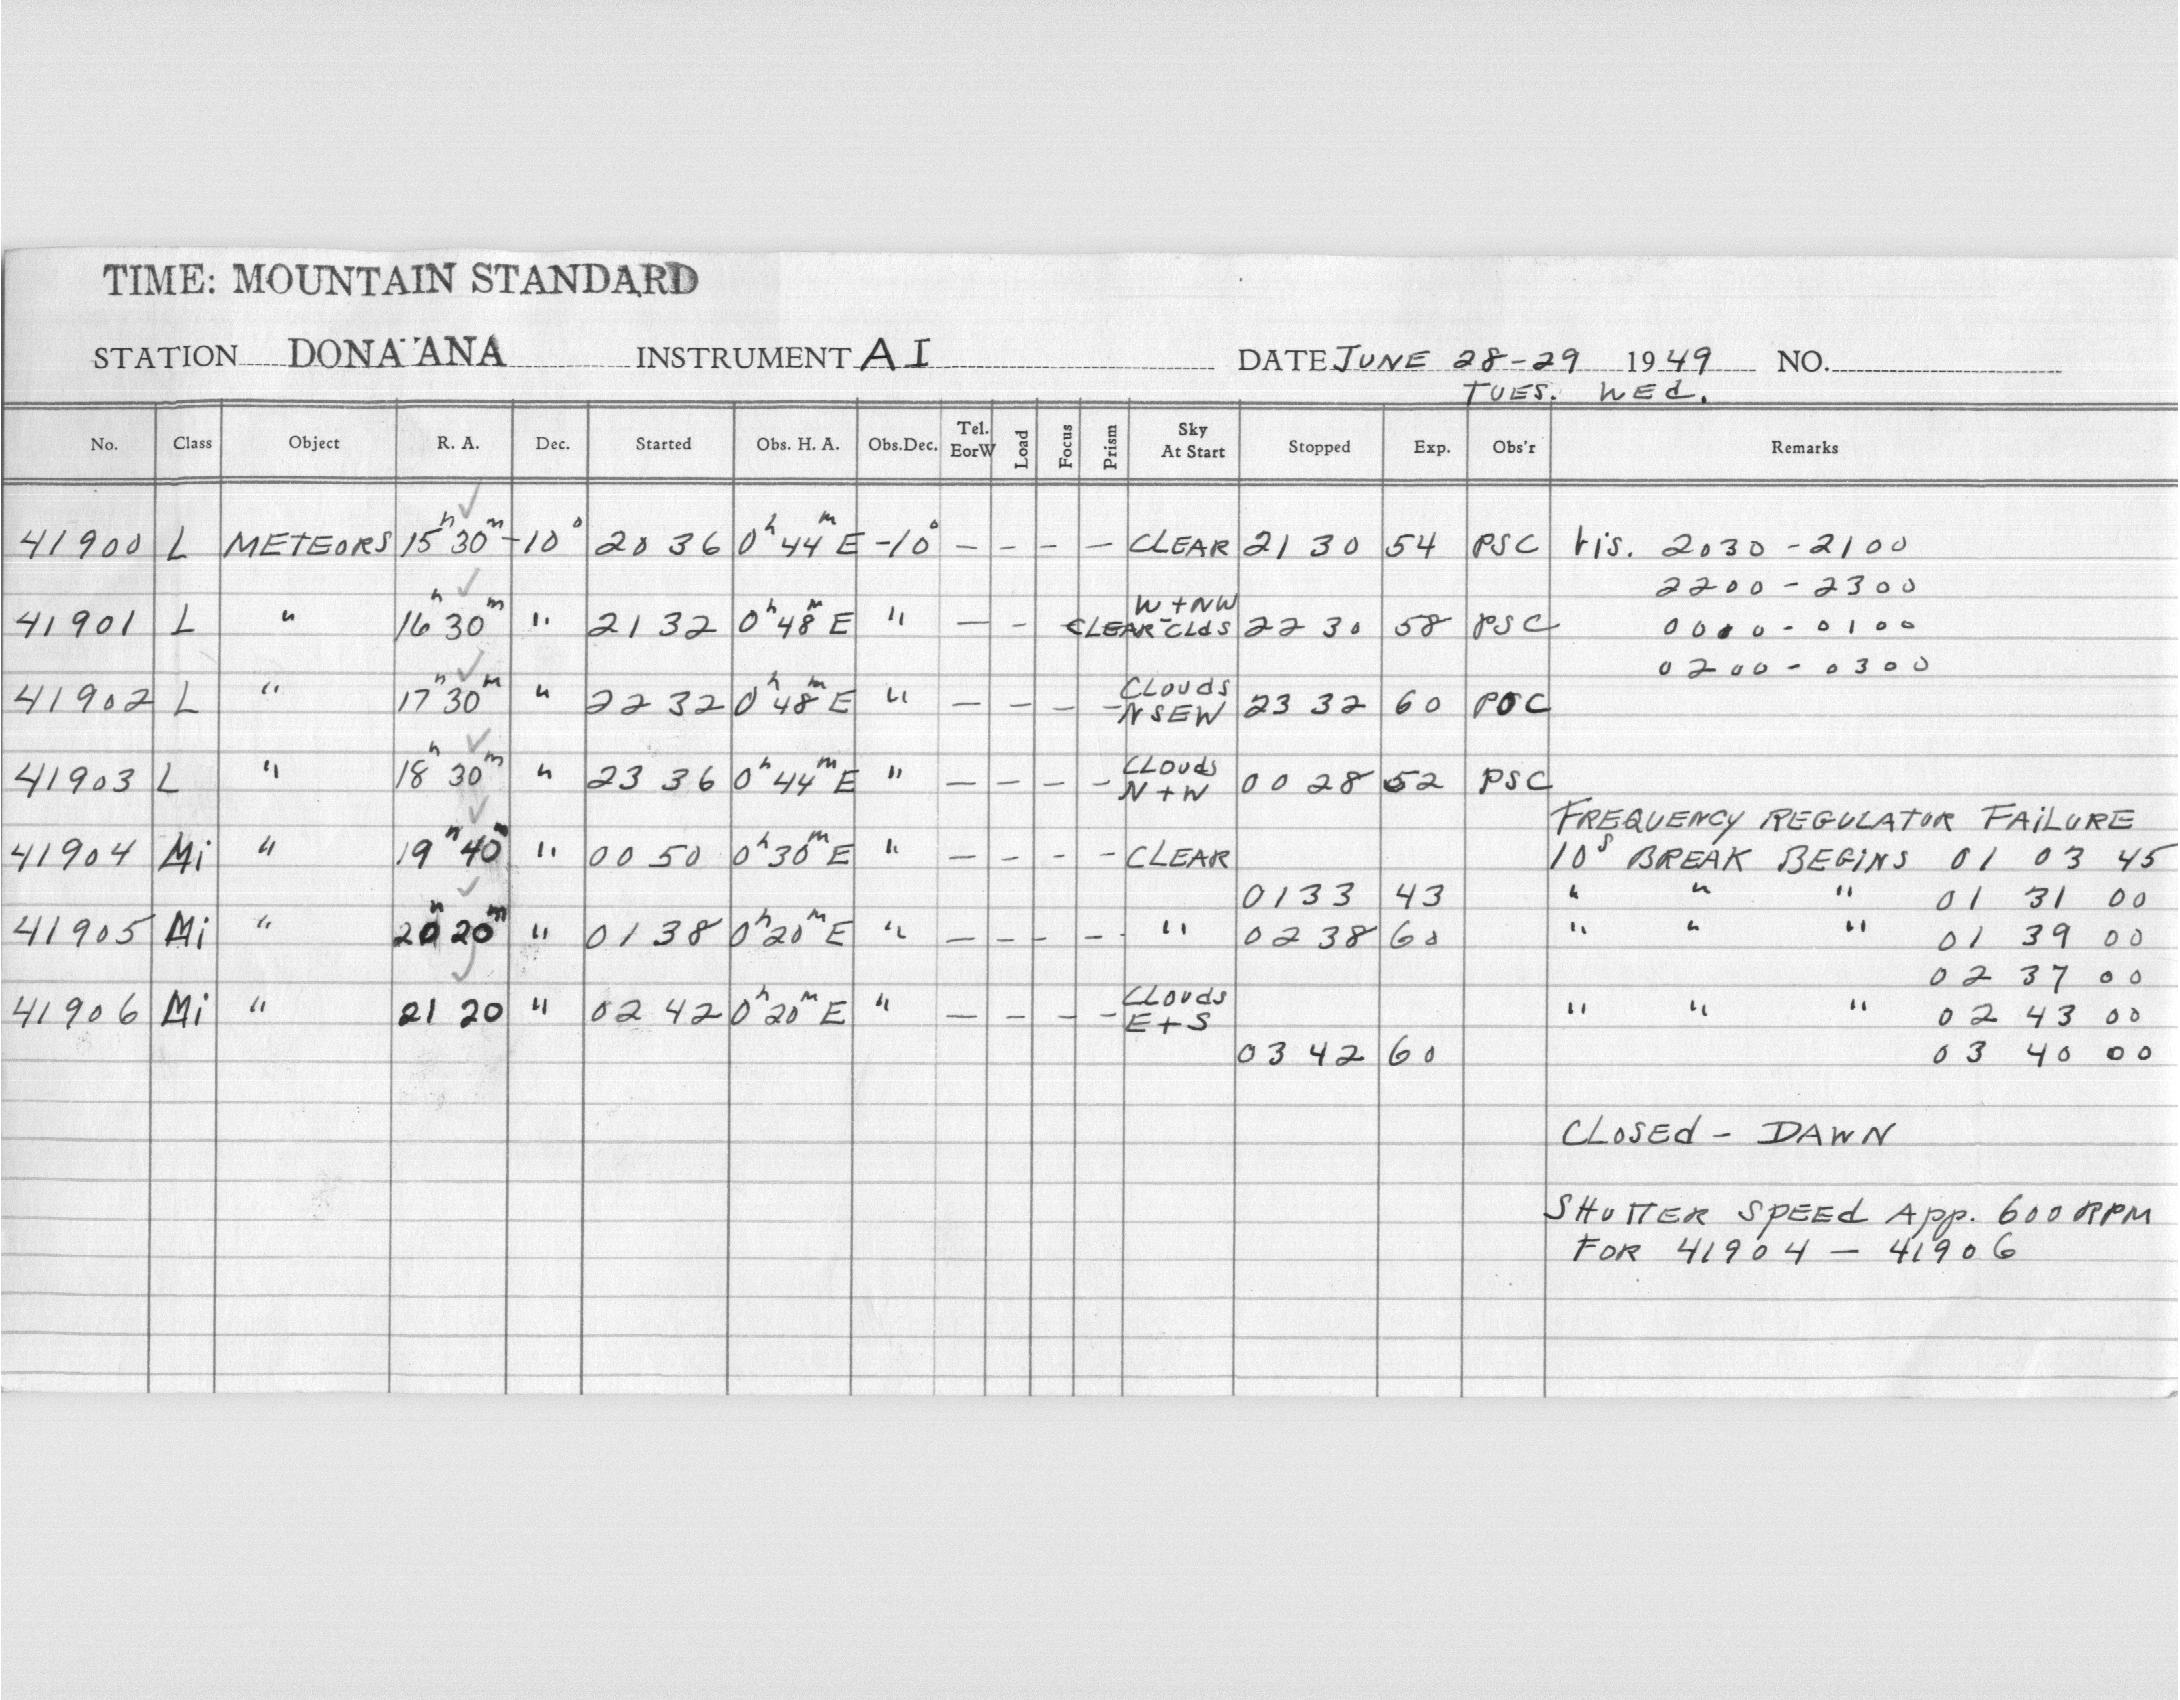 TIME: MOUNTAIN STANDARD
STATION DONA ANA INSTRUMENT AI DATE JUNE 28-29 1949 NO.
TUES. WEd.
No. Class Object R. A. Dec. Started Obs. H. A. Obs.Dec. Tel. EorW Load Focus Prism Sky At Start Stopped Exp. Obs'r Remarks
41900 L METEORS 15h 30m -10° 20 36 0h 44m E -10° — — — — CLEAR 21 30 54 PSC Vis. 2030 - 2100
2200 - 2300
W + NW
41901 L " 16h 30m " 21 32 0h 48m E " — - CLEAR-Clds 22 30 58 PSC 0000 - 0100
0200 - 0300
CLouds
41902 L " 17h 30m " 22 32 0h 48m E " — — — — NSEW 23 32 60 PSC
CLouds
41903 L " 18h 30m " 23 36 0h 44m E " — — — — N + W 00 28 52 PSC
FREQUENCY REGULATOR FAiLURE
41904 Mi " 19h 40m " 00 50 0h 30m E " — - - - CLEAR 10s BREAK BEGINS 01 03 45
0133 43 " " " 01 31 00
41905 Mi " 20h 20m " 01 38 0h 20m E " — — — — " 02 38 60 " " " 01 39 00
02 37 00
CLouds
41906 Mi " 21 20 " 02 42 0h 20m E " — — — — E + S " " " 02 43 00
03 42 60 03 40 00
CLOSEd - DAWN
SHUTTER SPEEd App. 600 RPM
FOR 41904 — 41906